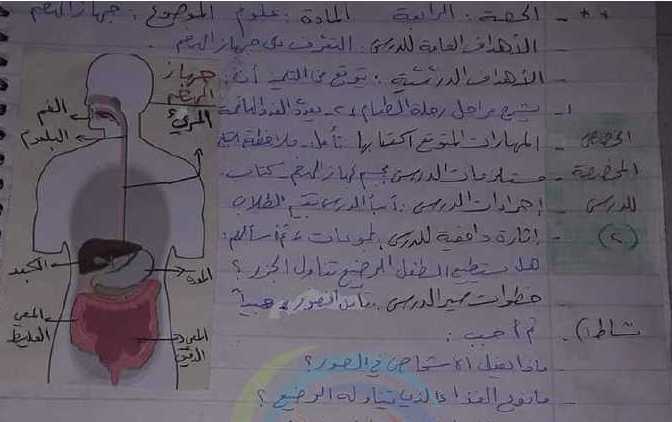 الحصة : الرابعة المادة : علوم الموضوع : جهاز الهضم
الأهداف العامة للدرس : التعرف على جهاز الهضم .
الأهداف الدرسية : يتوقع من التلميذ أن :
1- يشرح مراحل رحلة الطعام 2- يعدد الغدد الهاضمة
المهارات المتوقع اكتسابها : تأمل - ملاحظة
مستلزمات الدرس : مجسم لجهاز الهضم - كتاب .
إجراءات الدرس : أبدأ الدرس بتقسيم الطلاب
إثارة دافعية للدرس لمجموعات ثم أسألهم :
هل يستطيع الطفل الرضيع تناول الجزر ؟
خطوات سير الدرس : تأمل الصور
ثم أجب .
ماذا يفعل الأشخاص في الصور ؟
ما نوع الغذاء الذي يتناوله الرضيع ؟
الحصص
المخصصة
للدرس
(2)
نشاط 1) .
جهاز
الهضم
الفم
المريء
البلعوم
الكبد
المعدة
المعي
الغليظ
المعي
الدقيق